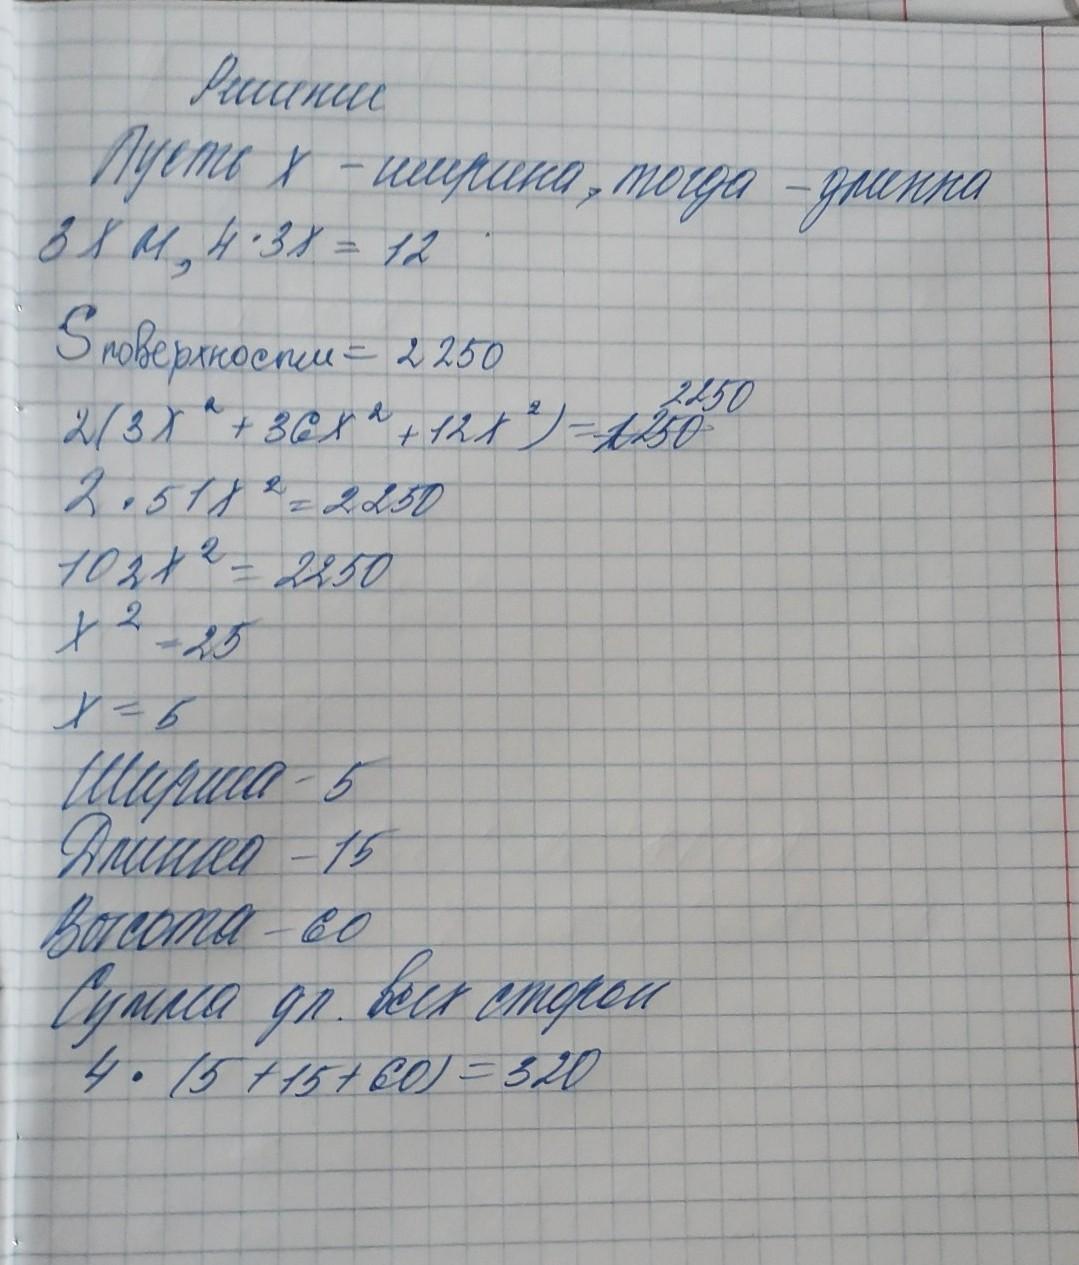 Решение
Пусть x - ширина, тогда - длинна
3x м, 4·3x = 12
Sповерхности = 2250
2250
2(3x² + 36x² + 12x²) = 1250
2·51x² = 2250
102x² = 2250
x² = 25
x = 5
Ширина - 5
Длинна - 15
Высота - 60
Сумма дл. всех сторон
4·(5+15+60) = 320